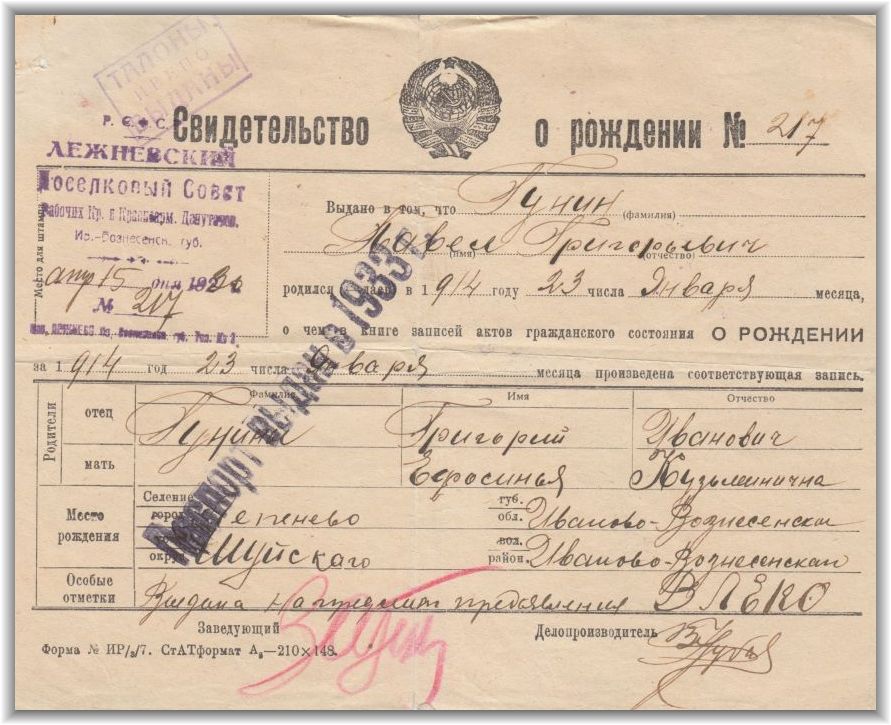 ТАЛОНЫ
ВЫДАНЫ
Р. С. Ф. С.
Свидетельство о рождении № 217
ЛЕЖНЕВСКИЙ
Поселковый Совет
Рабочих Кр. и Красноарм. Депутатов.
Ив.-Вознесенск. губ.
Место для штампа
апр 15 дня 1930
№ 217
Выдано в том, что Гунин
(фамилия)
Павел Григорьевич
(имя) (отчество)
родился лась в 1914 году 23 числа Января месяца,
о чем в книге записей актов гражданского состояния О РОЖДЕНИИ
за 1914 год 23 числа Января месяца произведена соответствующая запись.
Паспорт выдан в 1933 г.
Фамилия Имя Отчество
Родители
отец Гунин Григорий Иванович
мать Ефросинья Кузьминична
Место рождения
Селение
город епенево
губ.
обл. Иваново-Вознесенская
округ Шуйского
вол.
район. Иваново-Вознесенская
Особые отметки
Выдана на предмет предъявления ВЛЕКО
Заведующий Делопроизводитель
Форма № ИР/з/7. СтАТформат А₅—210×148.